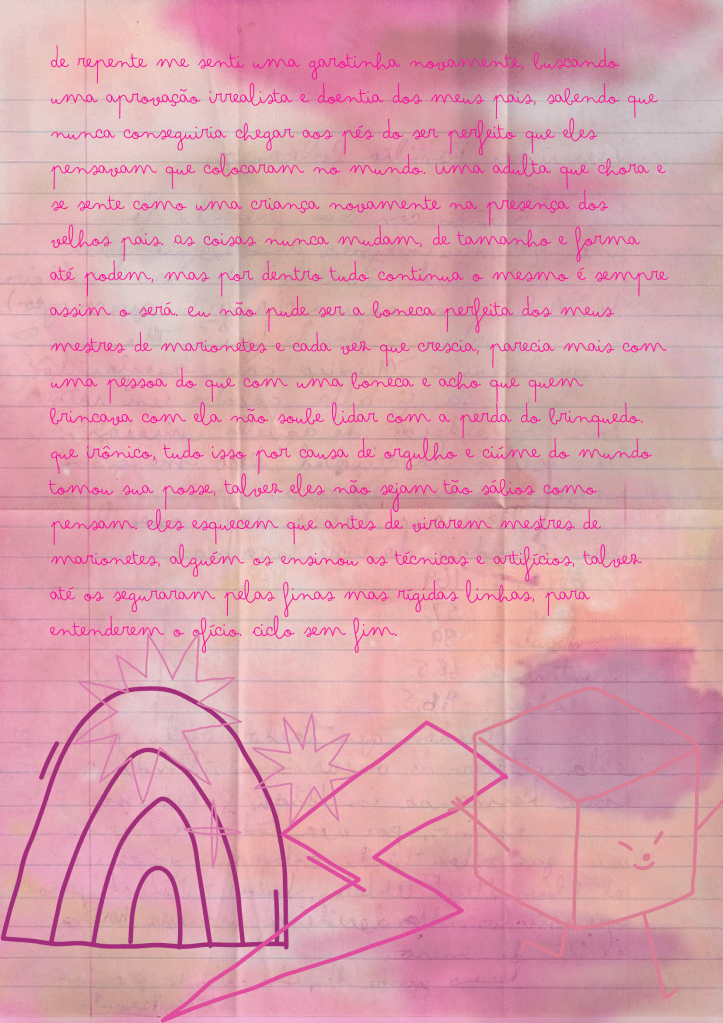 de repente me senti uma garotinha novamente, buscando
uma aprovação irrealista e doentia dos meus pais, sabendo que
nunca conseguiria chegar aos pés do ser perfeito que eles
pensavam que colocaram no mundo. uma adulta que chora e
se sente como uma criança novamente na presença dos
velhos pais. as coisas nunca mudam, de tamanho e forma
até podem, mas por dentro tudo continua o mesmo é sempre
assim o será. eu não pude ser a boneca perfeita dos meus
mestres de marionetes e cada vez que crescia, parecia mais com
uma pessoa do que com uma boneca e acho que quem
brincava com ela não soube lidar com a perda do brinquedo.
que irônico, tudo isso por causa de orgulho e ciúme do mundo
tomou sua posse, talvez eles não sejam tão sábios como
pensam. eles esquecem que antes de virarem mestres de
marionetes, alguém os ensinou as técnicas e artifícios, talvez
até os seguraram pelas finas mas rígidas linhas, para
entenderem o ofício. ciclo sem fim.